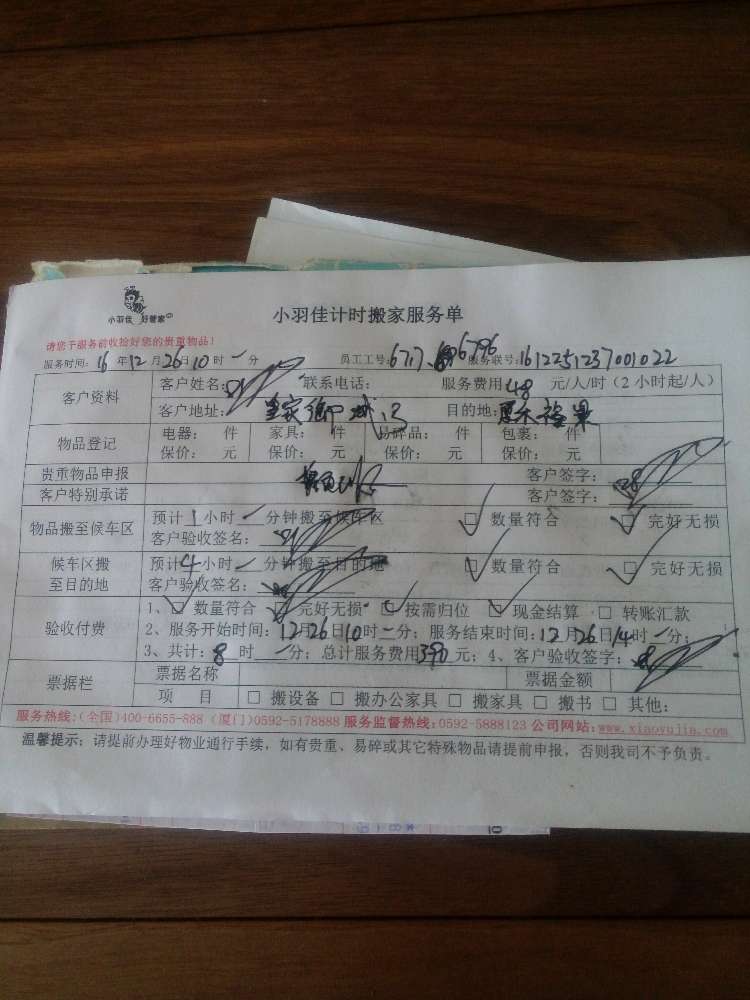 小羽佳 好管家
小羽佳计时搬家服务单
请您于服务前收捡好您的贵重物品!
服务时间: 16 年 12 月 26 日 10 时 一 分 员工工号: 6717 6796 服务联号: 1612251237001022
客户资料 客户姓名: 联系电话: 服务费用 48 元/人/时(2小时起/人)
客户地址: 皇家御城 目的地:
物品登记 电器: 件 家具: 件 易碎品: 件 包裹: 件
保价: 元 保价: 元 保价: 元 保价: 元
贵重物品申报 客户签字:
客户特别承诺 客户签字:
物品搬至候车区 预计 1 小时 一 分钟搬至候车区 ☑ 数量符合 ☑ 完好无损
客户验收签名:
候车区搬至目的地 预计 4 小时 一 分钟搬至目的地 ☑ 数量符合 ☑ 完好无损
客户验收签名:
验收付费 1、☑ 数量符合 ☑ 完好无损 ☑ 按需归位 ☑ 现金结算 □ 转账汇款
2、服务开始时间: 12 月 26 日 10 时 一 分; 服务结束时间: 12 月 26 日 14 时 一 分;
3、共计: 8 时 一 分; 总计服务费用 390 元; 4、客户验收签字:
票据栏 票据名称 票据金额
项 目 □ 搬设备 □ 搬办公家具 □ 搬家具 □ 搬书 □ 其他:
服务热线:(全国)400-6655-888 (厦门)0592-5178888 服务监督热线:0592-5888123 公司网站:www.xiaoyujia.com
温馨提示: 请提前办理好物业通行手续, 如有贵重、易碎或其它特殊物品请提前申报, 否则我司不予负责。